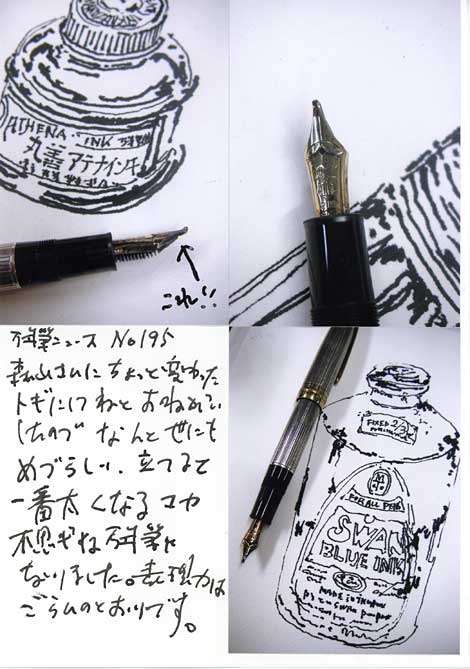 ATHENA・INK
丸善アテナインキ
これ!!
万年筆ニュース No195
森山さんにちょっと変わった
トギにしてねとおねがいし
ましたので なんと世にも
めづらしい、立てると
一番太くなるコワ
不思ギな万筆に
なりました。表現力は
ごらんのとおりです。
FIXED
FOR ALL PENS
SWAN
BLUE INK
MADE IN